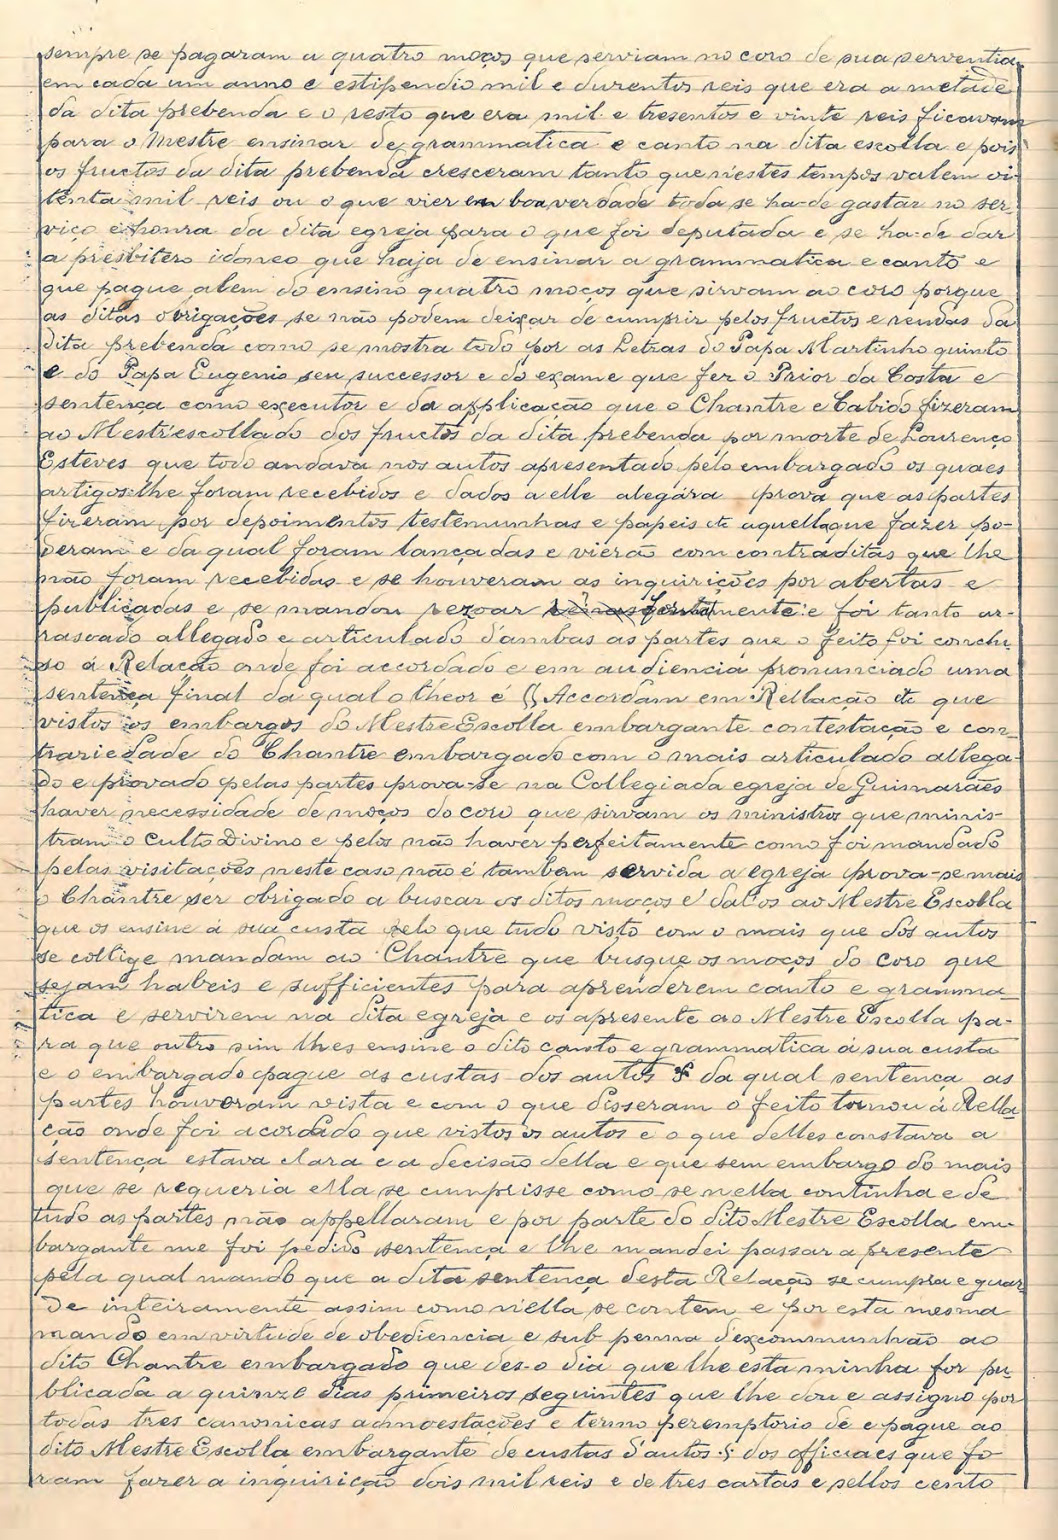 sempre se pagaram a quatro moços que serviam no coro de sua serventia
em cada um anno e estipendio mil e duzentos reis que era a metade
da dita prebenda e o resto que era mil e tresentos e vinte reis ficavam
para o Mestre ensinar de grammatica e canto na dita escolla e pois
os fructos da dita prebenda cresceram tanto que n'estes tempos valem oi-
tenta mil reis ou o que vier em boa verdade toda se ha-de gastar no ser-
viço e honra da dita egreja para o que foi deputada e se ha-de dar
a presbitero idoneo que haja de ensinar a grammatica e canto e
que pague alem do ensino quatro moços que sirvam ao coro porque
as ditas obrigações se não podem deixar de cumprir pelos fructos e rendas da
dita prebenda como se mostra todo por as Letras do Papa Martinho quinto
e do Papa Eugenio seu successor e do exame que fez o Prior da Costa e
sentença como executor e da applicação que o Chantre e Cabido fizeram
ao Mestr'escollado dos fructos da dita prebenda por morte de Lourenço
Esteves que todo andava nos autos apresentado pelo embargado os quaes
artigos lhe foram recebidos e dados a elle alegára prova que as partes
fizeram por depoimentos testemunhas e papeis etc aquella que fazer po-
deram e da qual foram lançadas e vierão com contraditas que lhe
não foram recebidas e se houveram as inquirições por abertas e
publicadas e se mandou rezoar mente e foi tanto ar-
rasoado allegado e articulado d'ambas as partes que o feito foi conclu-
so á Relação onde foi accordado e em audiencia pronunciado uma
sentença final da qual o theor é Accordam em Rellação etc que
vistos os embargos do Mestre Escolla embargante contestação e con-
trariedade do Chantre embargado com o mais articulado allega-
do e provado pelas partes prova-se na Collegiada egreja de Guimarães
haver necessidade de moços do coro que sirvam os ministros que minis-
tram o Culto Divino e pelos não haver perfeitamente como foi mandado
pelas visitações neste caso não é tambem servida a egreja prova-se mais
o Chantre ser obrigado a buscar os ditos moços e dal'os ao Mestre Escolla
que os ensine á sua custa pelo que tudo visto com o mais que dos autos
se collige mandam ao Chantre que busque os moços do coro que
sejam habeis e sufficientes para aprenderem canto e gramma-
tica e servirem na dita egreja e os apresente ao Mestre Escolla pa-
ra que outro sim lhes ensine o dito canto e grammatica á sua custa
e o embargado pague as custas dos autos da qual sentença as
partes houveram vista e com o que disseram o feito tornou á Rella-
ção onde foi acordado que vistos os autos e o que delles constava a
sentença estava clara e a decisão della e que sem embargo do mais
que se requeria ella se cumprisse como se nella continha e de
tudo as partes não appellaram e por parte do dito Mestre Escolla em-
bargante me foi pedido sentença e lhe mandei passar a presente
pela qual mando que a dita sentença desta Relação se cumpra e guar-
de inteiramente assim como n'ella se contem e por esta mesma
mando em virtude de obediencia e sub penna d'excommunhão ao
dito Chantre embargado que des-o dia que lhe esta minha for pu-
blicada a quinze dias primeiros seguintes que lhe dou e assigno por
todas tres canonicas admoestações e termo peremptorio dê e pague ao
dito Mestre Escolla embargante de custas d'autos dos officiaes que fo-
ram fazer a inquirição dois mil reis e de tres cartas e sellos cento